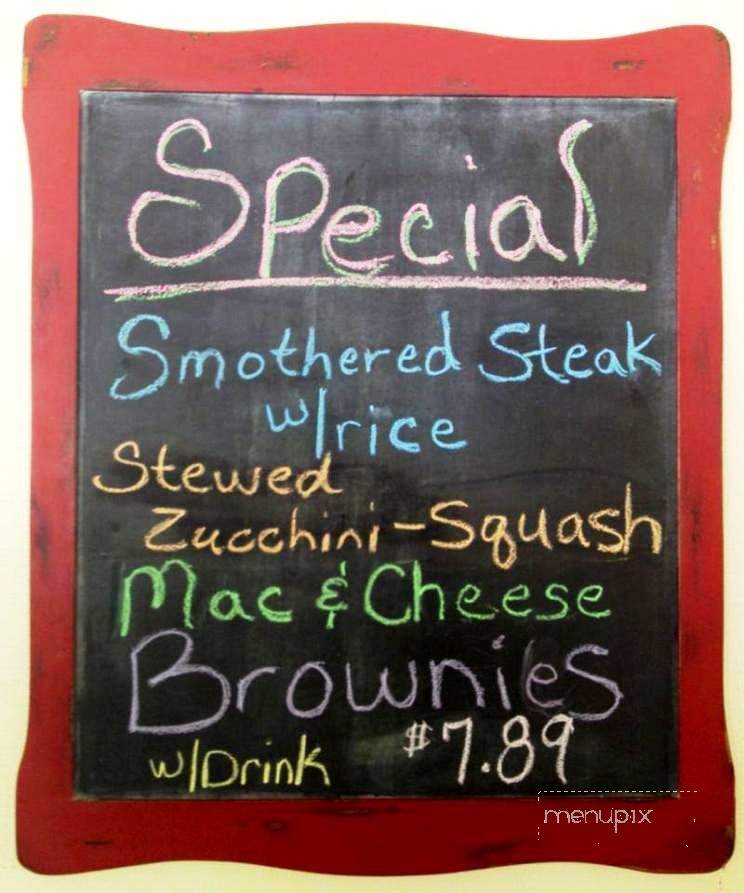 Special
Smothered Steak
w/rice
Stewed
Zucchini-Squash
Mac & Cheese
Brownies
w/Drink $7.89
menupix